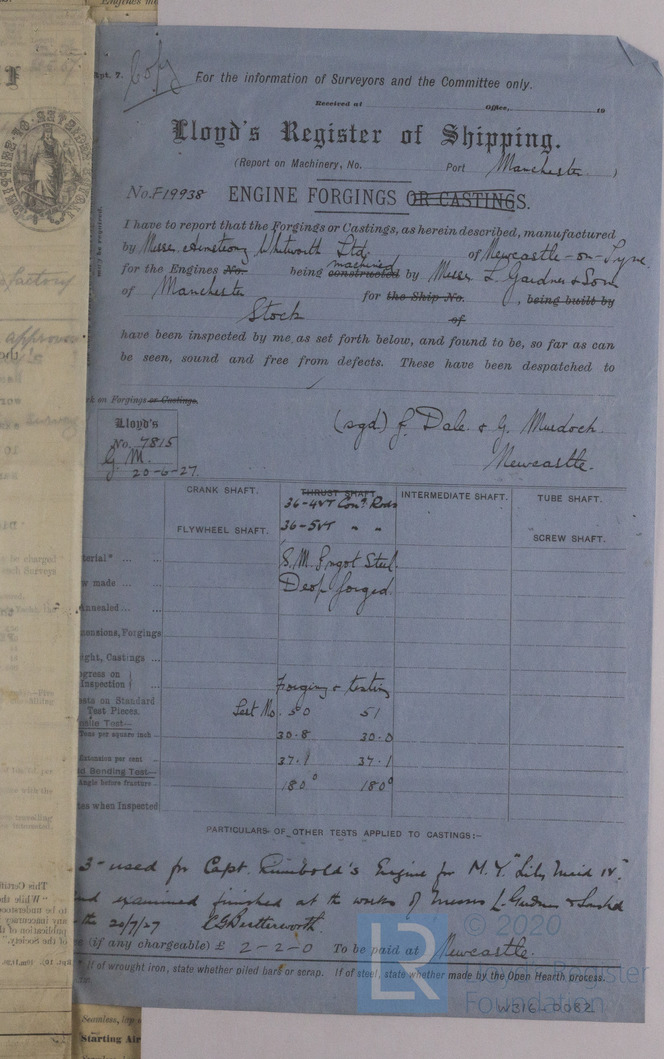 Rpt. 7. Copy
For the information of Surveyors and the Committee only.
Received at Office, 19
Lloyd's Register of Shipping.
(Report on Machinery, No. Port Manchester )
No. F19938 ENGINE FORGINGS OR CASTINGS.
I have to report that the Forgings or Castings, as herein described, manufactured
by Messrs Armstrong Whitworth Ltd. of Newcastle-on-Tyne.
machined
for the Engines No. being constructed by Messrs L Gardner & Sons
of Manchester for the Ship No. , being built by
Stock of
have been inspected by me as set forth below, and found to be, so far as can
be seen, sound and free from defects. These have been despatched to
on Forgings or Castings.
Lloyd's
No. 7815
G. M.
20-6-27.
(sgd) J. Dale & G. Murdoch.
Newcastle.
CRANK SHAFT. THRUST SHAFT INTERMEDIATE SHAFT. TUBE SHAFT.
36-4VT Conn Rods
FLYWHEEL SHAFT. 36-5VT " " SCREW SHAFT.
terial* ... S.M. Ingot Steel.
w made ... Drop forged.
Annealed ...
mensions, Forgings
ght, Castings ...
ogress on
Inspection Forging & testing
ests on Standard
Test Pieces. Test No. 50 51
sile Test—
Tons per square inch 30.8 30.0
Extension per cent 37.1 37.1
d Bending Test—
Angle before fracture 180° 180°
tes when Inspected
PARTICULARS OF OTHER TESTS APPLIED TO CASTINGS:-
3- used for Capt. Rumbold's Engine for M.Y. "Lily Maid IV."
and examined finished at the works of Messrs L. Gardner & Sons Ltd
the 20/7/27 C G Butterworth.
e (if any chargeable) £ 2-2-0 To be paid at Newcastle.
* If of wrought iron, state whether piled bars or scrap. If of steel, state whether made by the Open Hearth process.
LR
© 2020
Lloyd's Register
Foundation
W316-0082
Seamless, lap
Starting Air